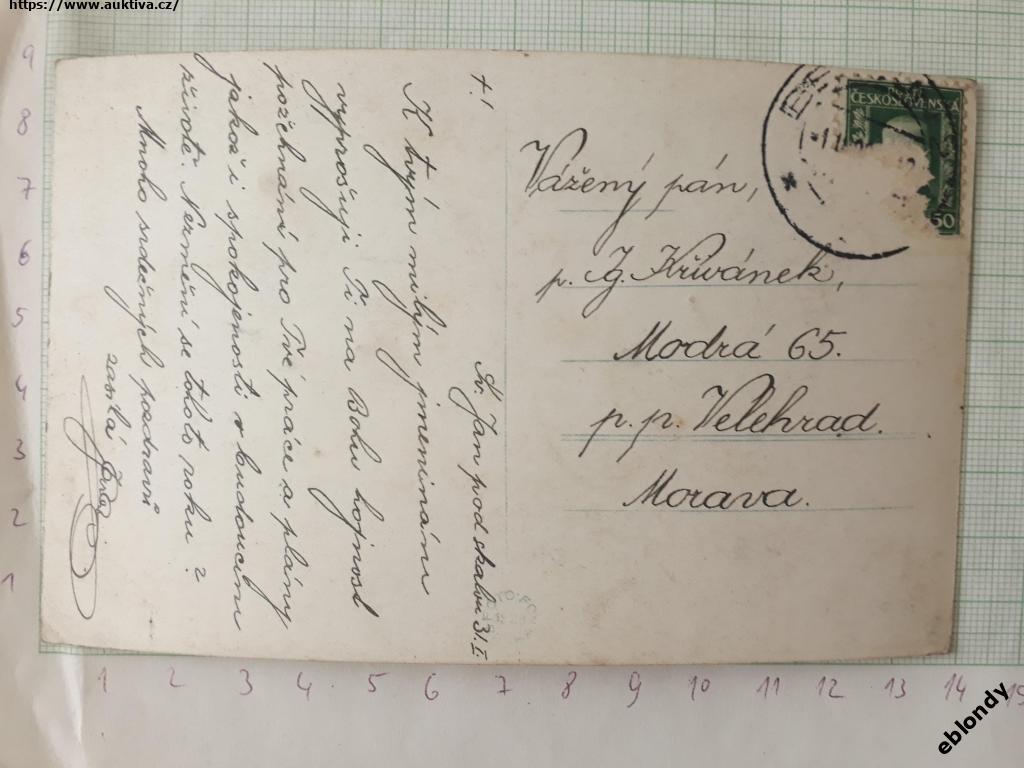 https://www.auktiva.cz/
+.!
Sv. Jan pod skalou 31.I
K tvým milým jmeninám
vyprošuji Ti na Bohu hojnost
požehnání pro Tvé práce a plány
jakož i spokojenosti v budoucím
životě. Nezmění se tohoto roku?
Mnoho srdečných pozdravů
zasílá
Vážený pán,
p. Ig. Křivánek,
Modrá 65.
p. p. Velehrad.
Morava.
ČESKOSLOVENSKÁ
50
9
8
7
6
5
4
3
2
1
1 2 3 4 5 6 7 8 9 10 11 12 13 14 15
eblondy